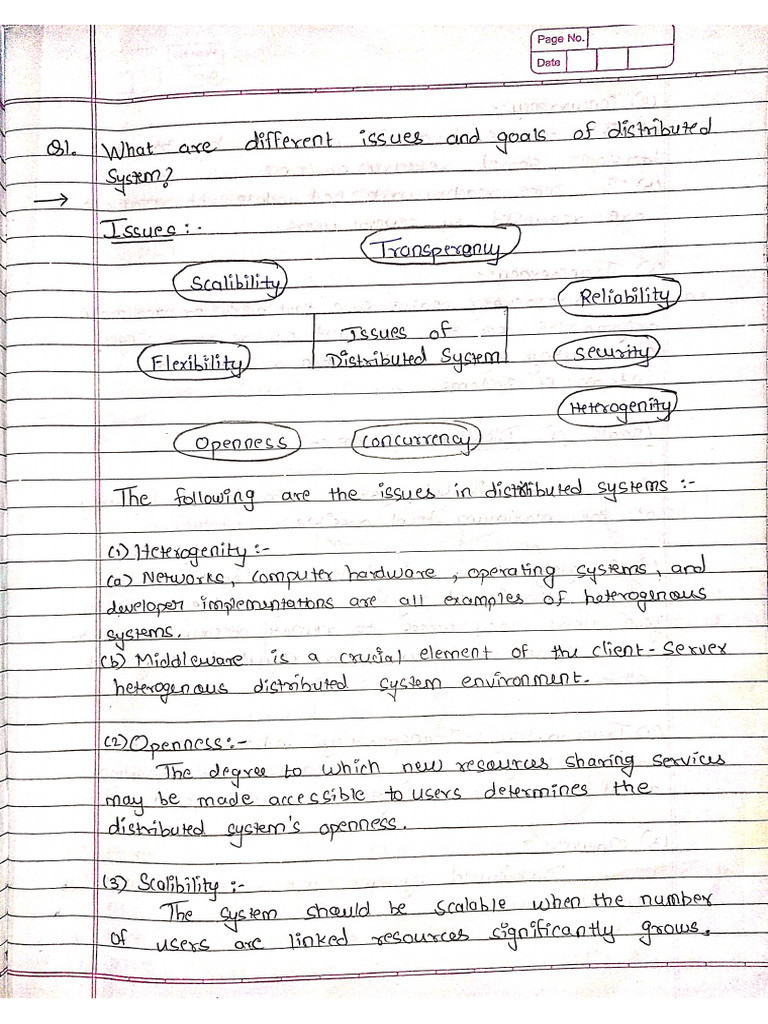 Page No.
Date
Q1. What are different issues and goals of distributed
system?
→ Issues :-
Transperency
Scalibility
Reliability
Issues of
Distributed System
Flexibility
Security
Heterogenity
Openness
Concurrency
The following are the issues in distributed systems :-
(1) Heterogenity :-
(a) Networks, computer hardware, operating systems, and
developer implementations are all examples of heterogenous
systems.
(b) Middleware is a crucial element of the client-server
heterogenous distributed system environment.
(2) Openness :-
The degree to which new resources sharing services
may be made accessible to users determines the
distributed system's openness.
(3) Scalibility :-
The system should be scalable when the number
of users are linked resources significantly grows.